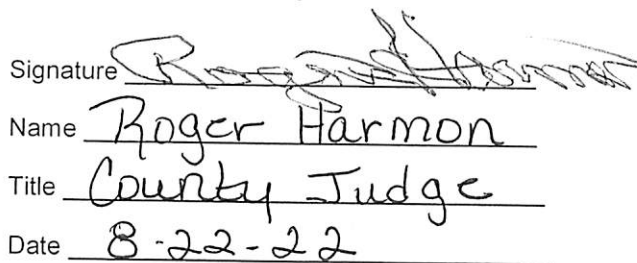 Signature Roger Harmon
Name Roger Harmon
Title County Judge
Date 8-22-22